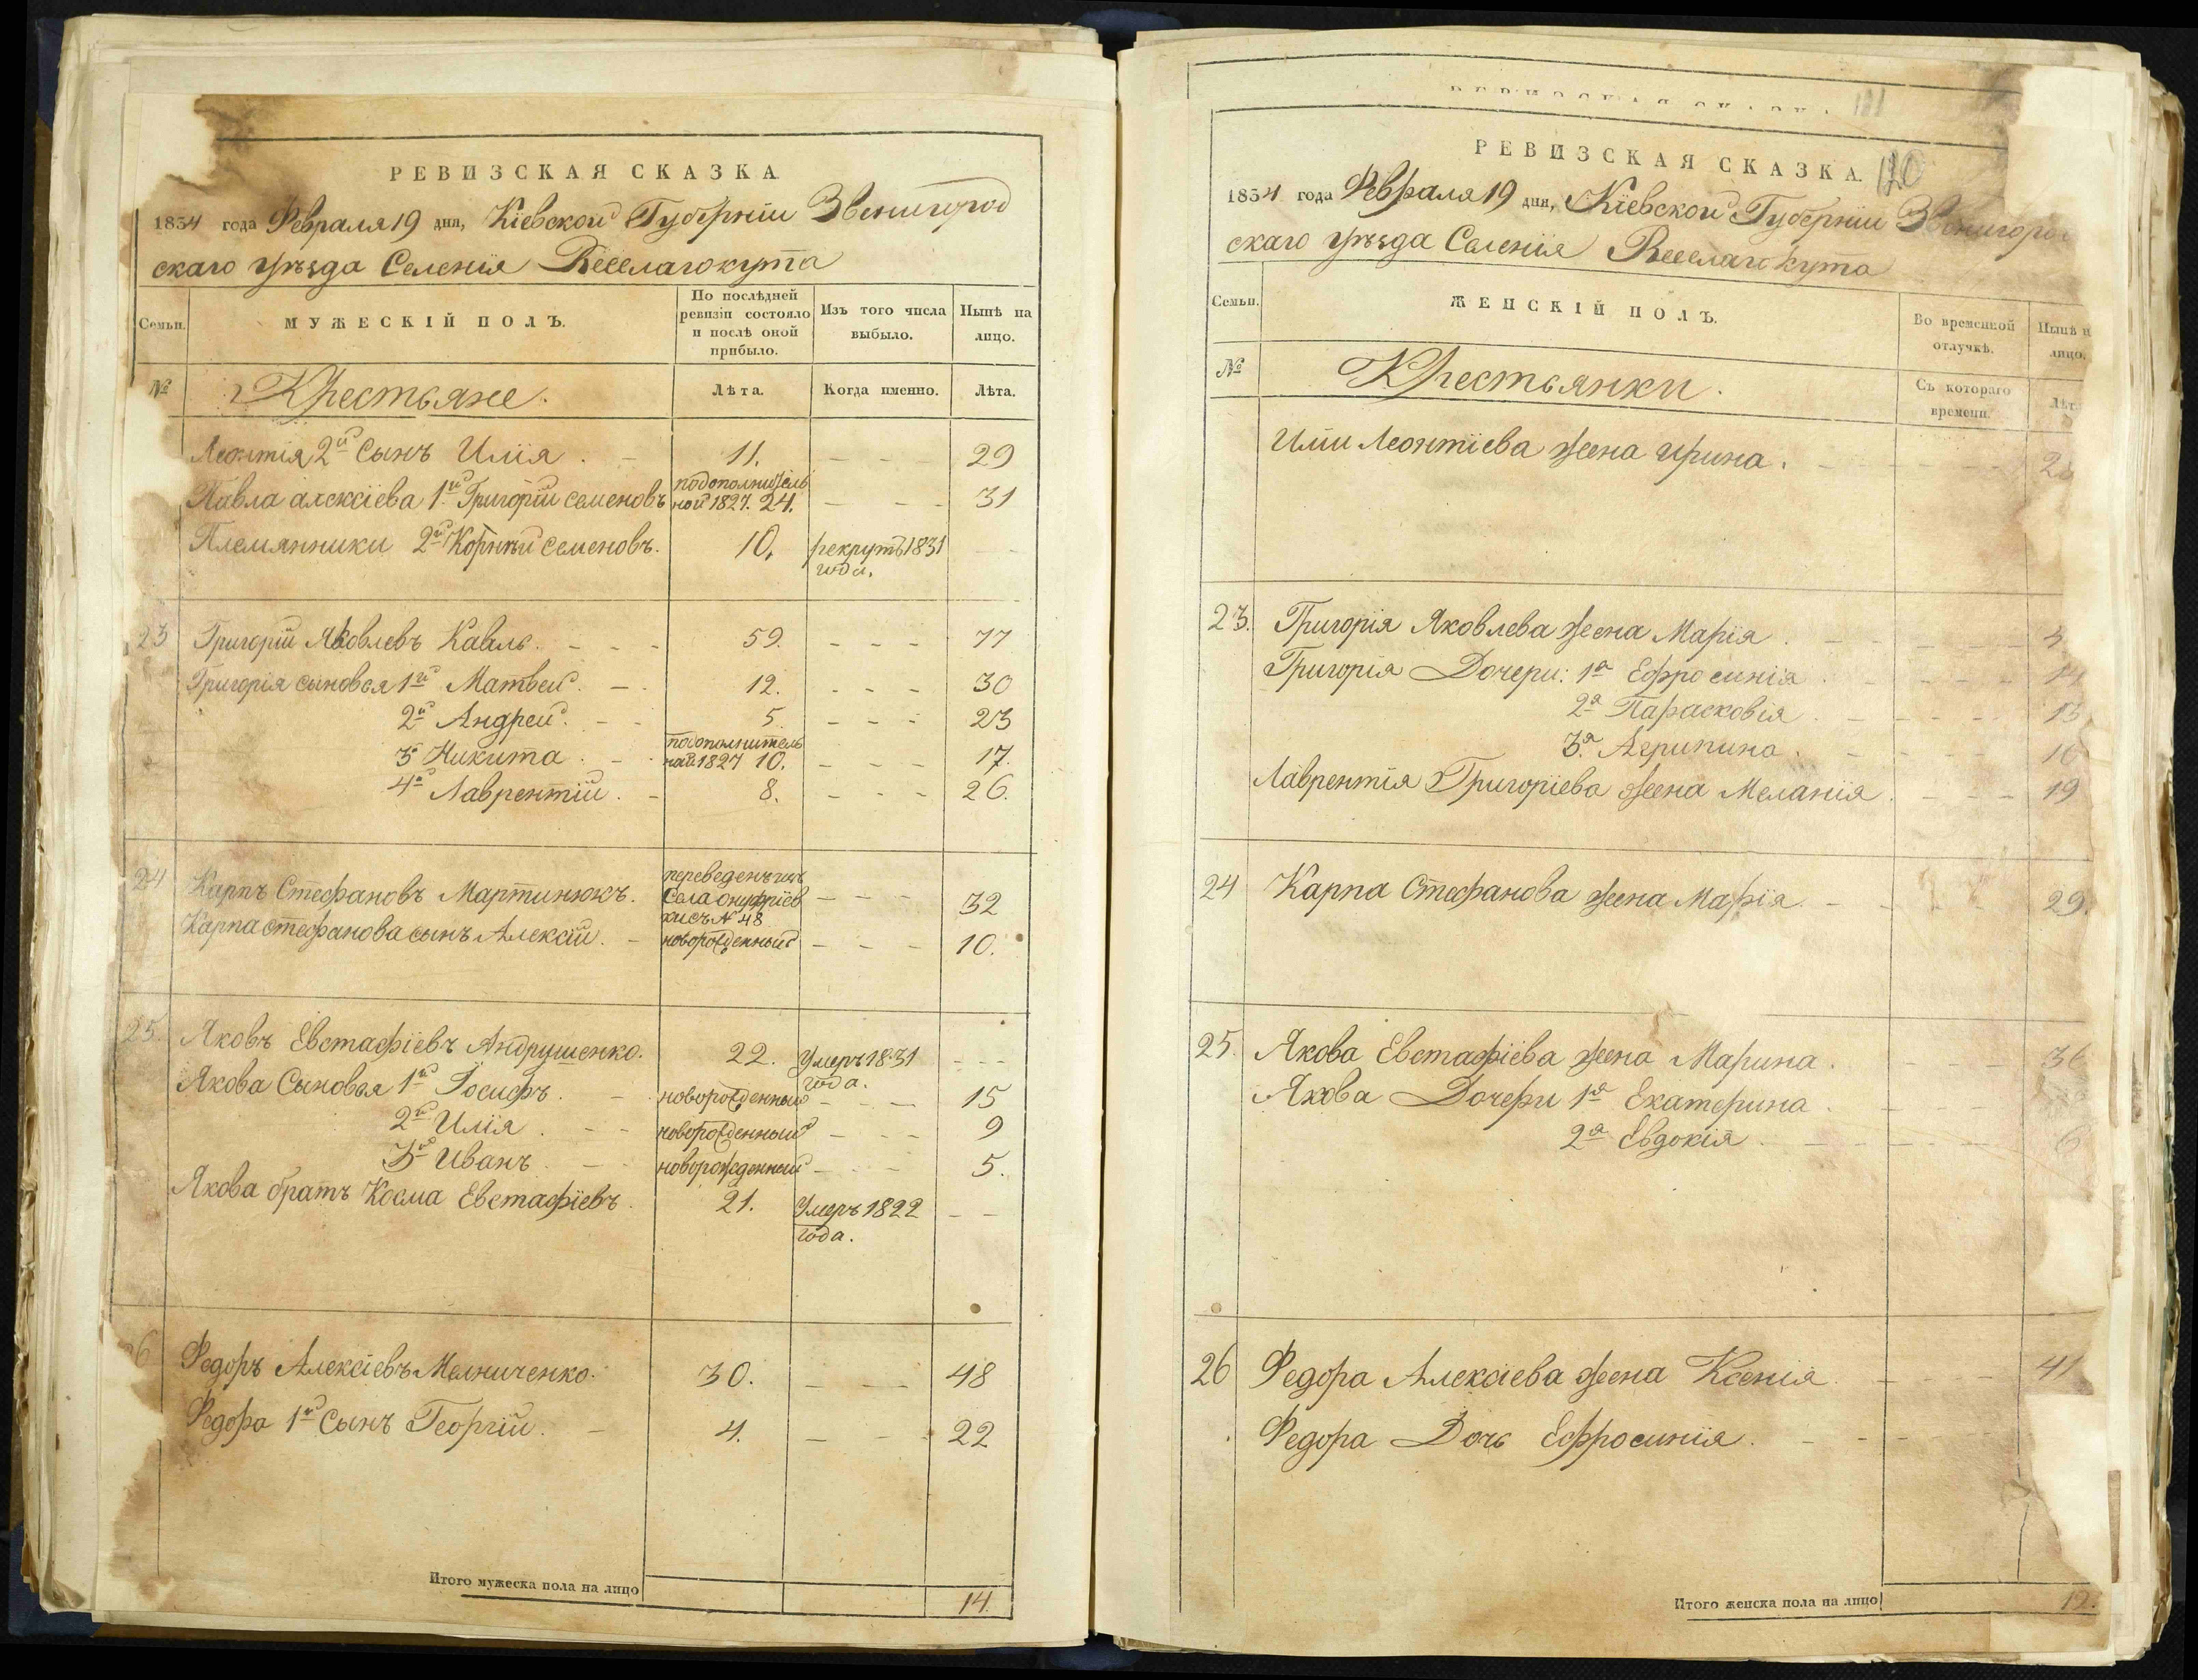 РЕВИЗСКАЯ СКАЗКА
1834 года Февраля 19 дня, Кіевской Губерніи Звенигород
скаго уѣзда Селенія Веселагокута
Семьи.
МУЖЕСКІЙ ПОЛЪ.
По послѣдней ревизіи состояло и послѣ оной прибыло.
Изъ того числа выбыло.
Нынѣ на лицо.
№
Крестьяне.
Лѣта.
Когда именно.
Лѣта.
Леонтія 2й Сынъ Илія . - 11. - - 29
подополнитель
Павла алексіева 1й Григорій семеновъ ной 1827. 24. - - - 31
Племянники 2й Корнѣй семеновъ. 10. рекрутъ 1831 - -
года.
23 Григорій Яковлевъ Каваль. - - - 59. - - - - 77
Григорія сыновья 1й Матвей. - . 12. - - - 30
2й Андрей. - - 5. - - - 23
подополнитель
3й Никита . - ной 1827 10. - - - 17.
4й Лаврентій . - 8. - - - 26.
переведенъ изъ
24 Карпъ Стефановъ Мартинюкъ. села онуфріев - - - 32
ки съ № 48
Карпа стефанова сынъ Алексій. - новорожденный - - - 10.
25. Яковъ Евстафіевъ Андрушенко. 22. Умеръ 1831 - - -
года.
Якова Сыновья 1й Іосифъ . - новорожденный - - - 15
2й Илія . - - новорожденный - - - 9
3й Иванъ . - новорожденный - - - 5.
Якова братъ Косма Евстафіевъ . 21. Умеръ 1822 - -
года.
26 Федоръ Алексіевъ Мелниченко. 30. - - - 48
Федора 1й Сынъ Георгій. - 4. - - - 22
Итого мужеска пола на лицо 14.
РЕВИЗСКАЯ СКАЗКА
121
РЕВИЗСКАЯ СКАЗКА. 120
1834 года Февраля 19 дня, Кіевской Губерніи Звенигород
скаго уѣзда Селенія Веселагокута
Семьи.
ЖЕНСКІЙ ПОЛЪ.
Во временной отлучкѣ.
Нынѣ н
лицо.
№
Крестьянки.
Съ котораго времени.
Лѣт
Иліи Леонтіева жена ирина.
23. Григорія Яковлева жена Марія .
Григорія Дочери: 1я Ефросинія .
2я Парасковія .
3я Агрипина .
Лаврентія Григоріева жена Меланія. - - - 19
24 Карпа Стефанова жена Марія. - - - 29.
25. Якова Евстафіева жена Марина .
Якова Дочери 1я Екатерина .
2я Евдокія . - - - 6
26 Федора Алексіева жена Ксенія. - - - 41
Федора Дочь Ефросинія . - - -
Итого женска пола на лицо 12.